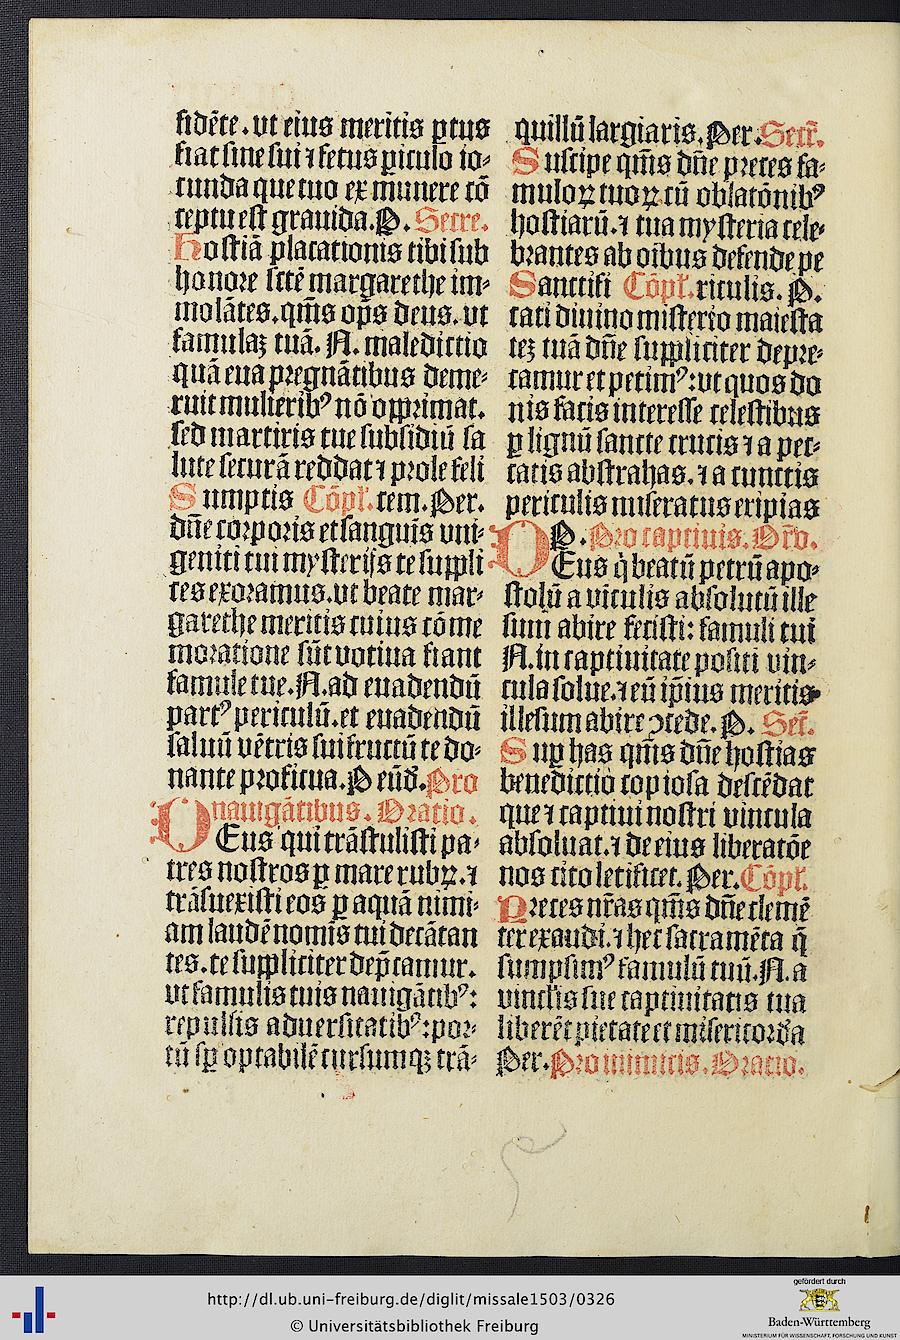 fidēte. vt eius meritis ꝑtus
fiat sine sui ⁊ fetus ꝑiculo io⸗
cunda que tuo ex munere cō
ceptu est grauida. P. Secre.
Hostiā placationis tibi sub
honore sctē margarethe im⸗
molātes. qm̄s op̄s deus. vt
famulaꝫ tuā. N. maledictio
quā eua pregnātibus deme⸗
ruit mulieribꝰ nō opprimat.
sed martiris tue subsidiū sa
lute securā reddat ⁊ prole feli
Sumptis Cōpł. cem. Per.
dn̄e corporis et sanguis vni⸗
geniti tui mysterijs te suppli
ces exoramus. vt beate mar⸗
garethe meritis cuius cōme
moratione sūt votiua fiant
famule tue. N. ad euadendū
partꝰ periculū. et euadendū
saluū vētris sui fructū te do⸗
nante proficua. P eūd̄. Pro
nauigātibus. Oratio.
DEus qui trāstulisti pa⸗
tres nostros ꝑ mare rubꝝ. ⁊
trāsuexisti eos ꝑ aquā nimi⸗
am laudē nomīs tui decātan
tes. te suppliciter dep̄camur.
vt famulis tuis nauigātibꝰ:
repulsis aduersitatibꝰ: por⸗
tū sꝑ optabilē cursumqꝫ trā⸗
quillū largiaris. Per. Secr̄.
Suscipe qm̄s dn̄e preces fa⸗
muloꝝ tuoꝝ cū oblatōnibꝰ
hostiarū. ⁊ tua mysteria cele⸗
brantes ab oībus defende pe
Sanctifi Cōpł. riculis. P.
cati diuino misterio maiesta
teꝫ tuā dn̄e suppliciter depre⸗
camur et petimꝰ: vt quos do
nis facis interesse celestibus
ꝑ lignū sancte crucis ⁊ a pec⸗
catis abstrahas. ⁊ a cunctis
periculis miseratus eripias
P. Pro captiuis. Or̄o.
DEus q̇ beatū petrū apo⸗
stolū a vīculis absolutū ille
sum abire fecisti: famuli tui
N. in captiuitate positi vin⸗
cula solue. ⁊ eū ip̄ius meritis
illesum abire ↄcede. P. Sec̄.
Suꝑ has qm̄s dn̄e hostias
benedictio copiosa descēdat
que ⁊ captiui nostri vincula
absoluat. ⁊ de eius liberatōe
nos cito letificet. Per. Cōpł.
Preces nr̄as qm̄s dn̄e clemē
ter exaudi. ⁊ hec sacramēta q̄
sumpsimꝰ famulū tuū. N. a
vinclis sue captiuitatis tua
liberēt pietate et misericord̄a
Per. Pro inimicis. Oratio.
http://dl.ub.uni-freiburg.de/diglit/missale1503/0326
© Universitätsbibliothek Freiburg
gefördert durch
Baden-Württemberg
MINISTERIUM FÜR WISSENSCHAFT, FORSCHUNG UND KUNST